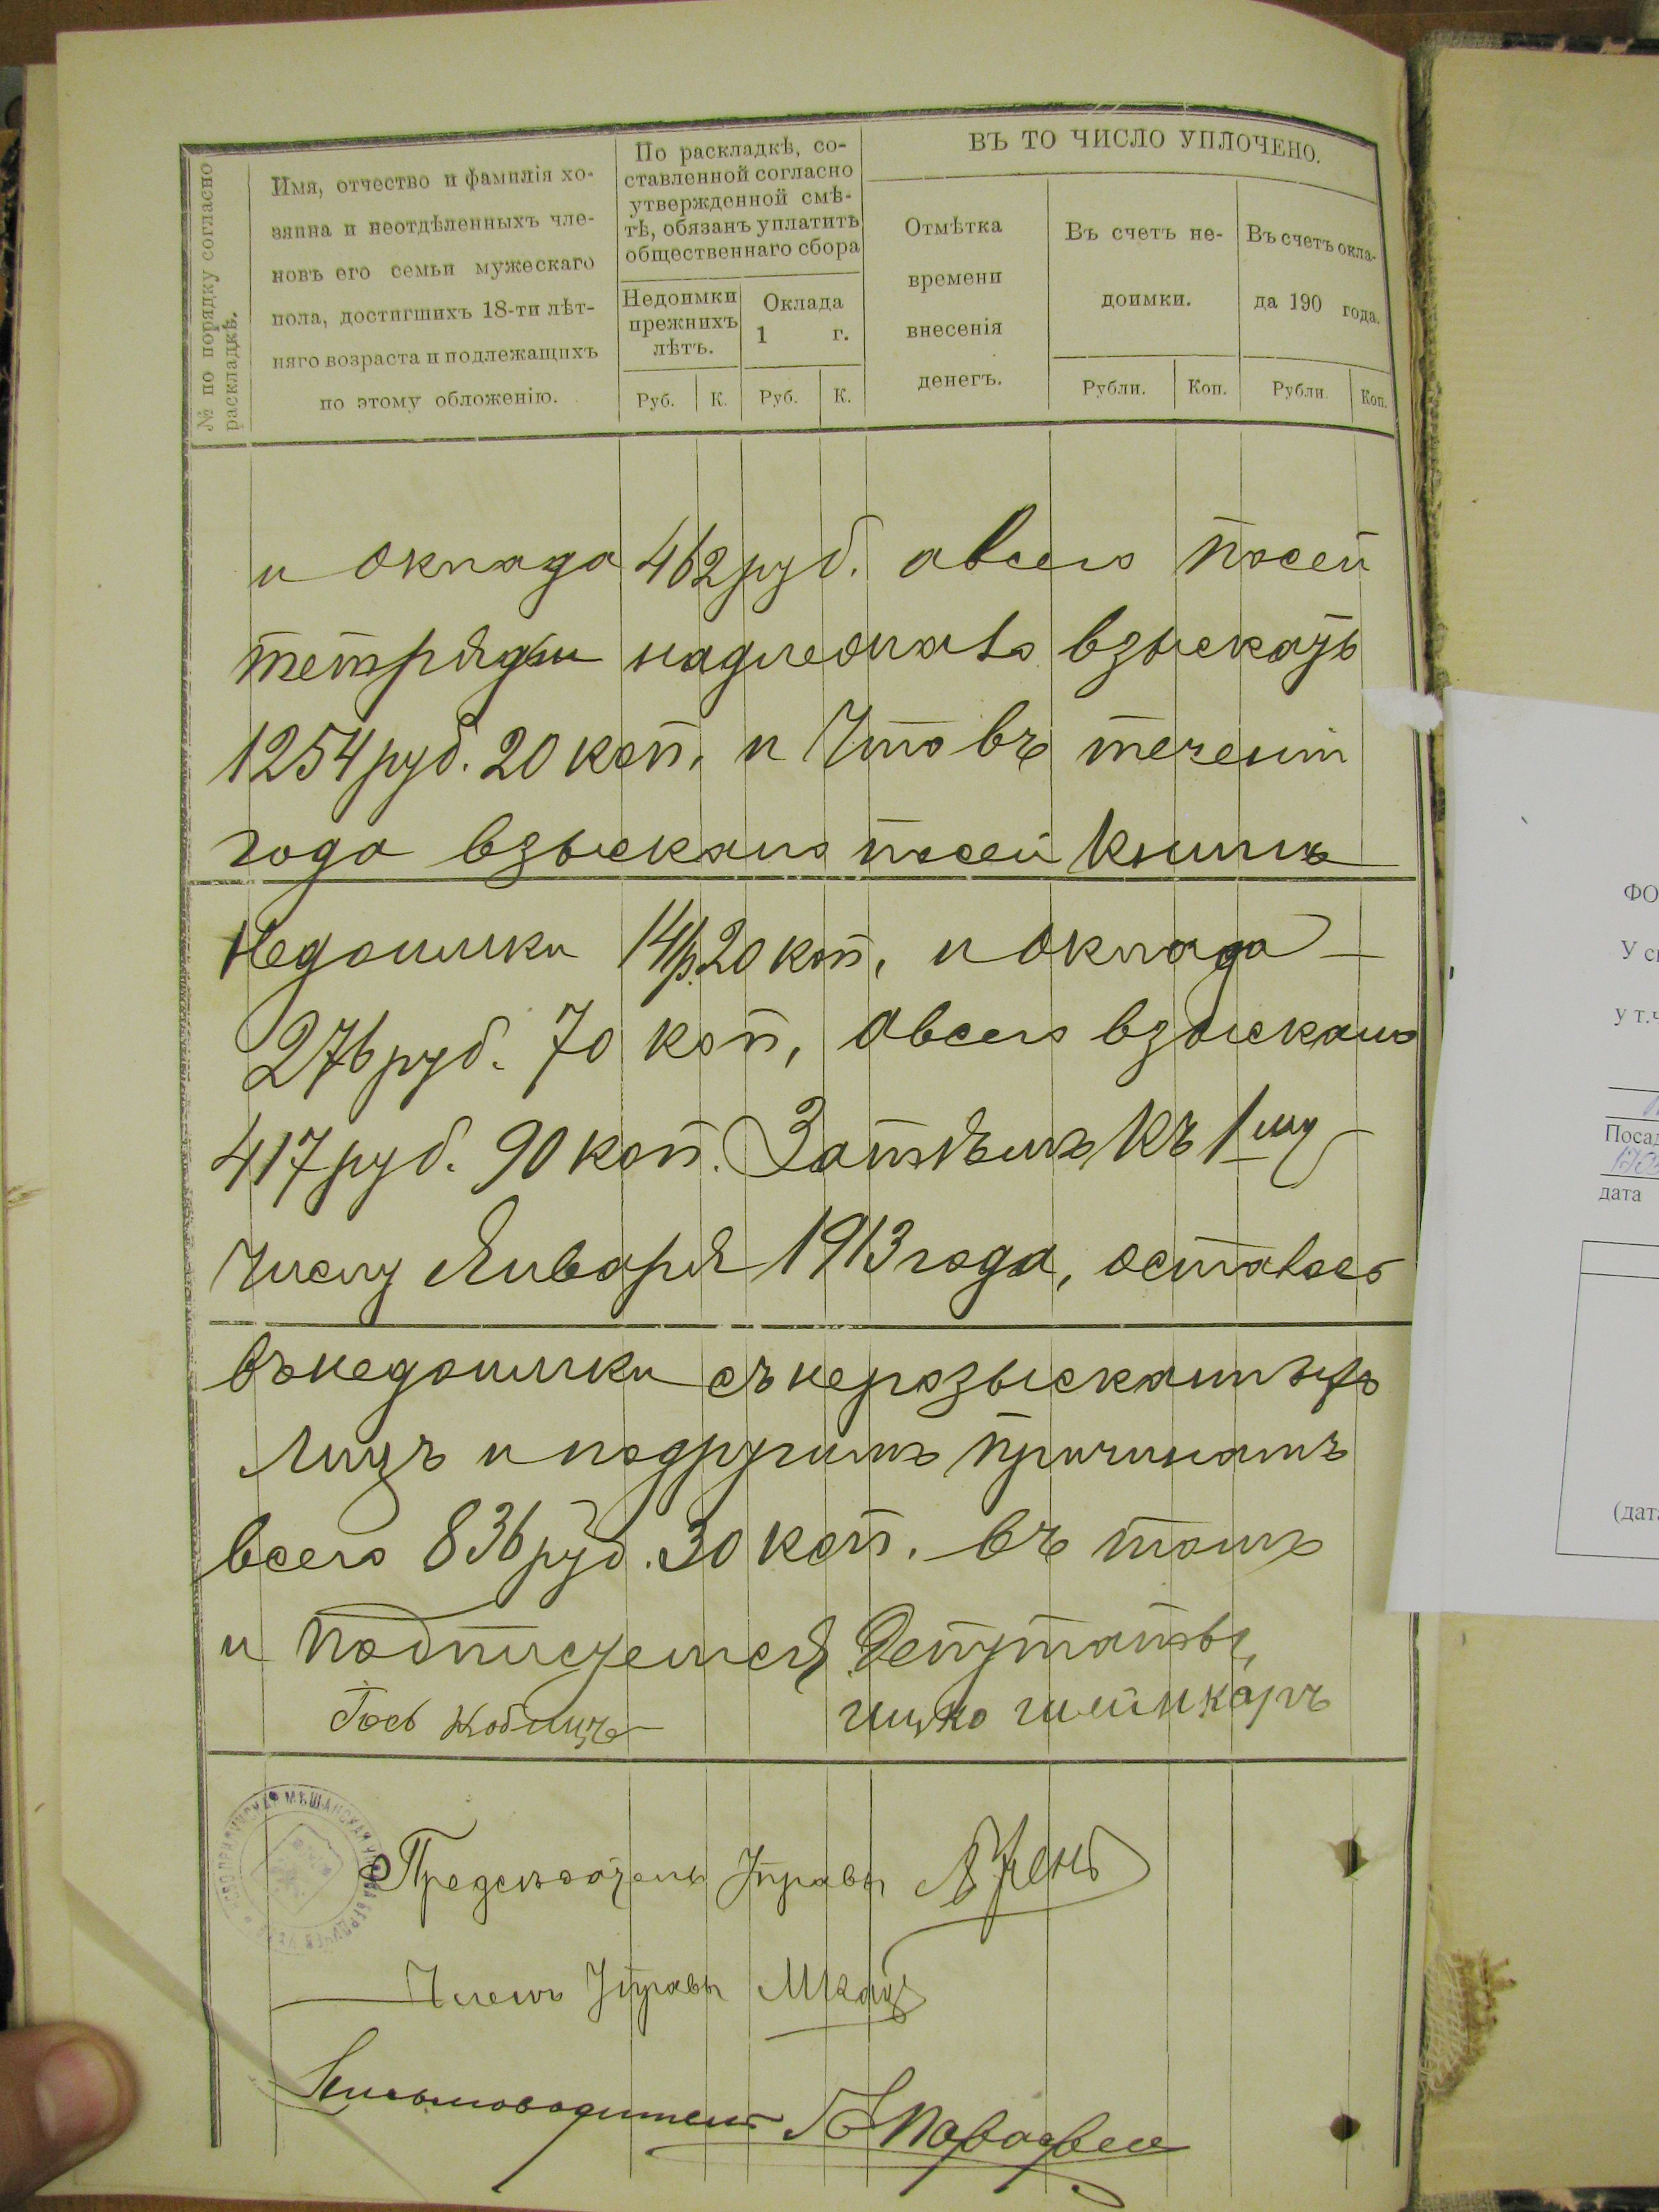 № по порядку согласно
раскладкѣ.
Имя, отчество и фамилія хо-
зяина и неотдѣленныхъ чле-
новъ его семьи мужескаго
пола, достигшихъ 18-ти лѣт-
няго возраста и подлежащихъ
по этому обложенію.
По раскладкѣ, со-
ставленной согласно
утвержденной смѣ-
тѣ, обязанъ уплатить
общественнаго сбора
Недоимки
прежнихъ
лѣтъ.
Оклада
1 г.
Руб. К. Руб. К.
ВЪ ТО ЧИСЛО УПЛОЧЕНО.
Отмѣтка
времени
внесенія
денегъ.
Въ счетъ не-
доимки.
Въ счетъ окла-
да 190 года.
Рубли. Коп. Рубли. Коп.
и оклада 462 руб. а всего посей
тетради надлежало взыскать
1254 руб. 20 коп. и Что въ течени
года взыскано посей Книгѣ
Недоимки 141 р. 20 коп, и оклада
276 руб. 70 коп, а всего взыскано
417 руб. 90 коп. Затѣмъ Къ 1му
Числу Января 1913 года, осталось
въ недоимки съ неразысканныхъ
Лицъ и подругимъ причинамъ
всего 836 руб. 30 коп. въ томъ
и подписуемся Депутаты,
Предсѣдатель Управы
Членъ Управы МКацъ
Письмоводитель
МѢЩАНСКАЯ
ФО
У с
у т.ч
Посад
дата
(дата